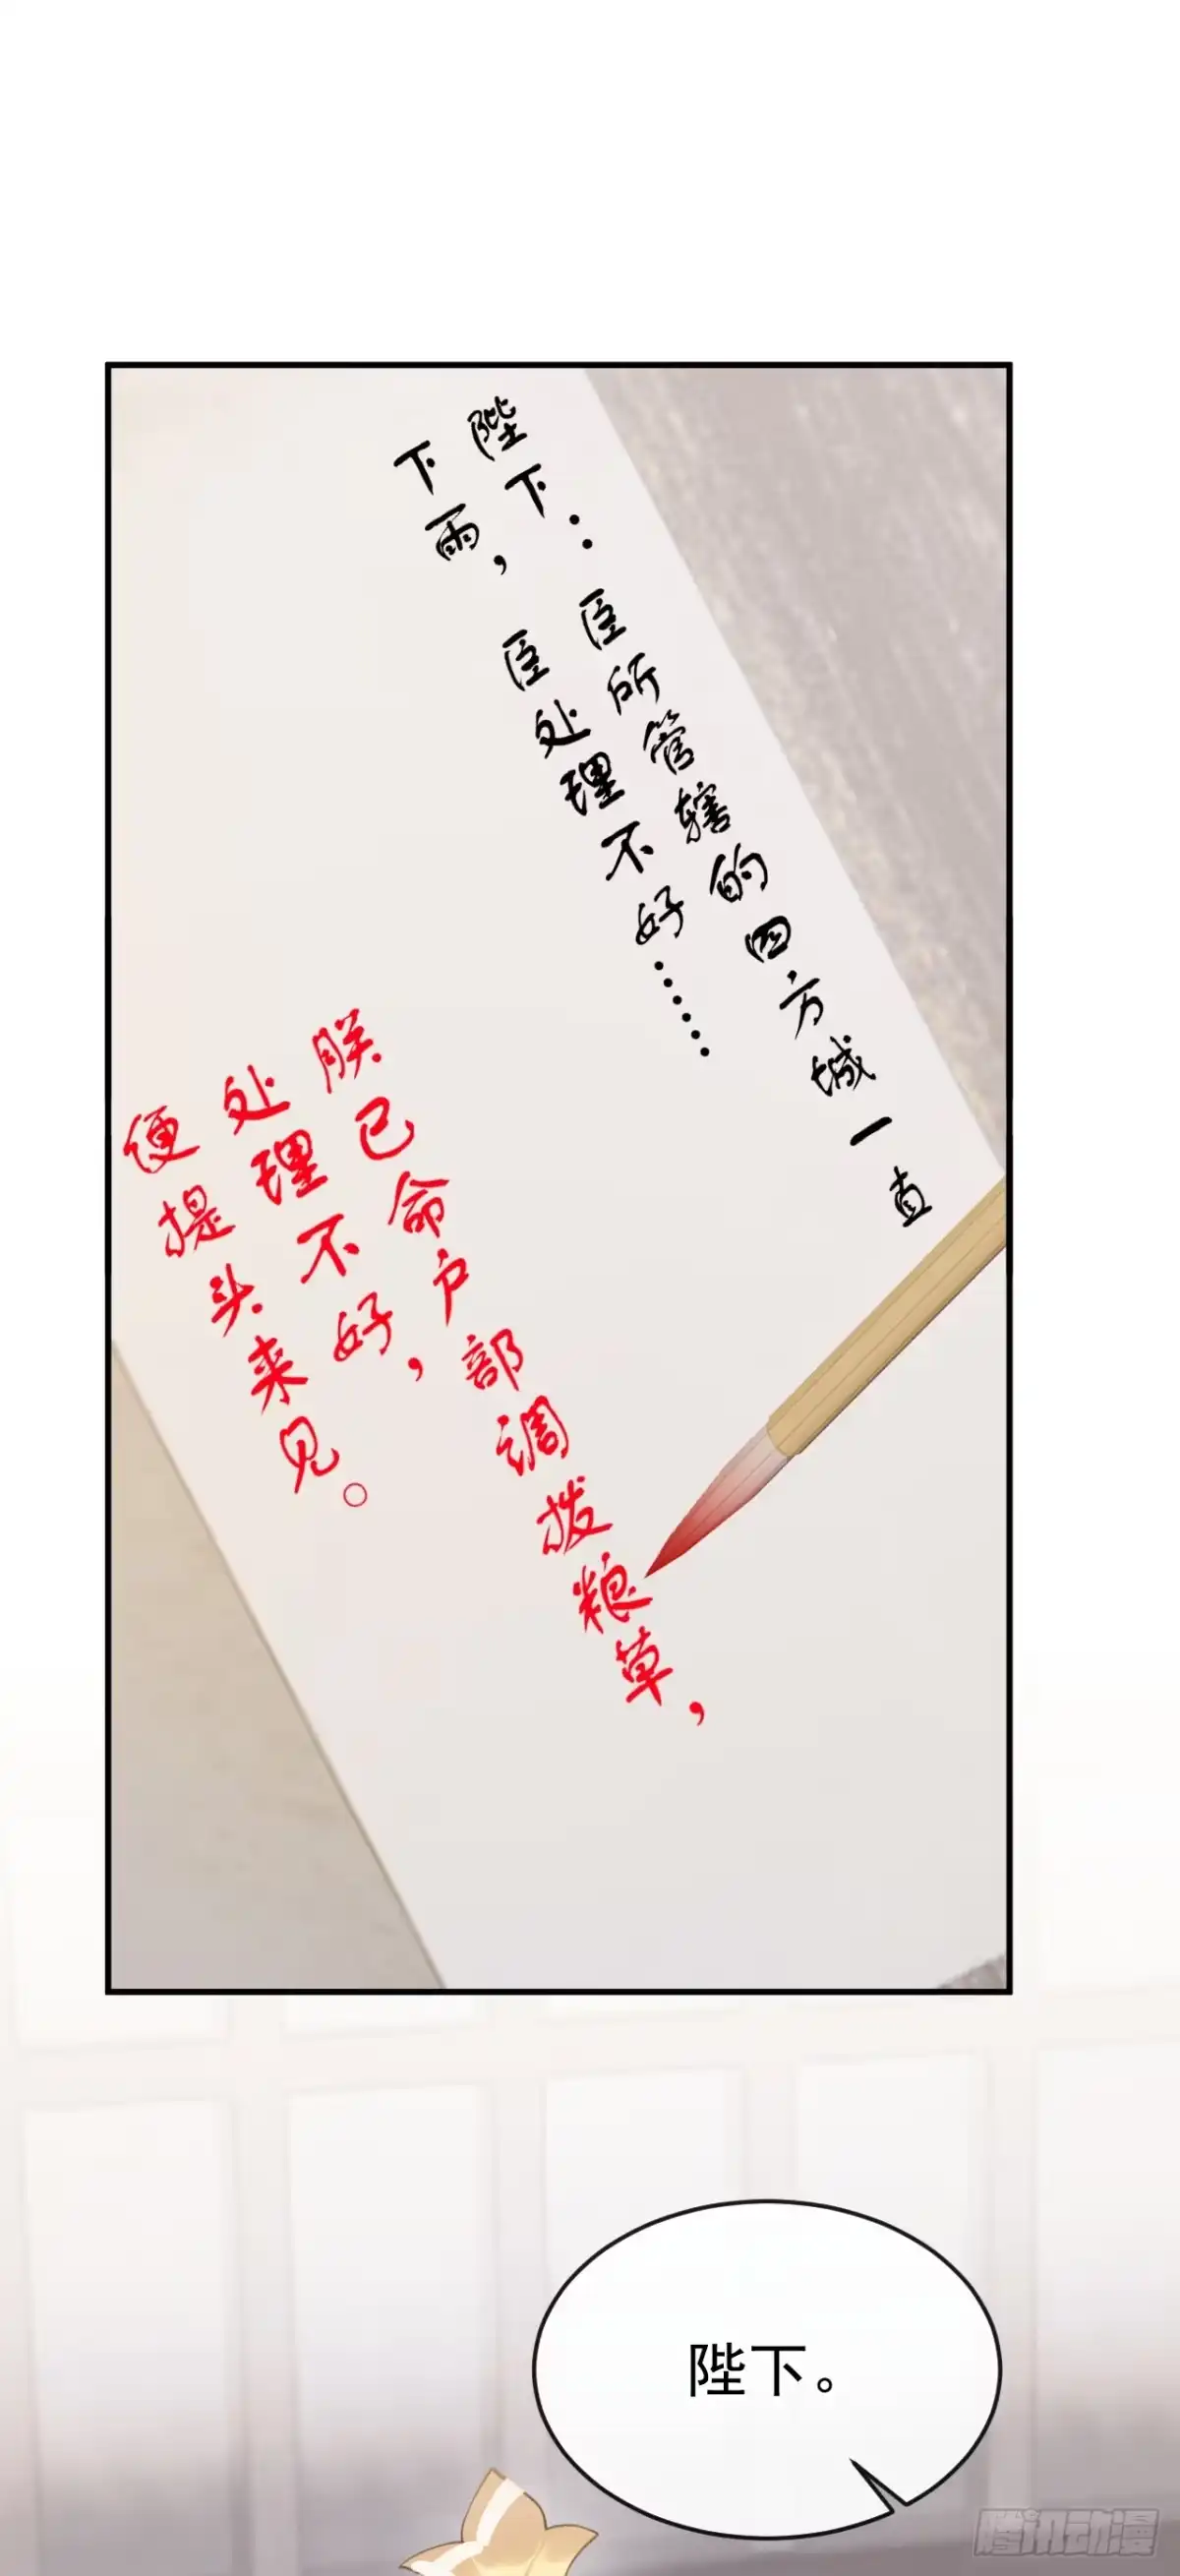 陛下：臣所管辖的四方城一直
下雨，臣处理不好……
朕已命户部调拨粮草，
处理不好，
便提头来见。
陛下。
腾讯动漫